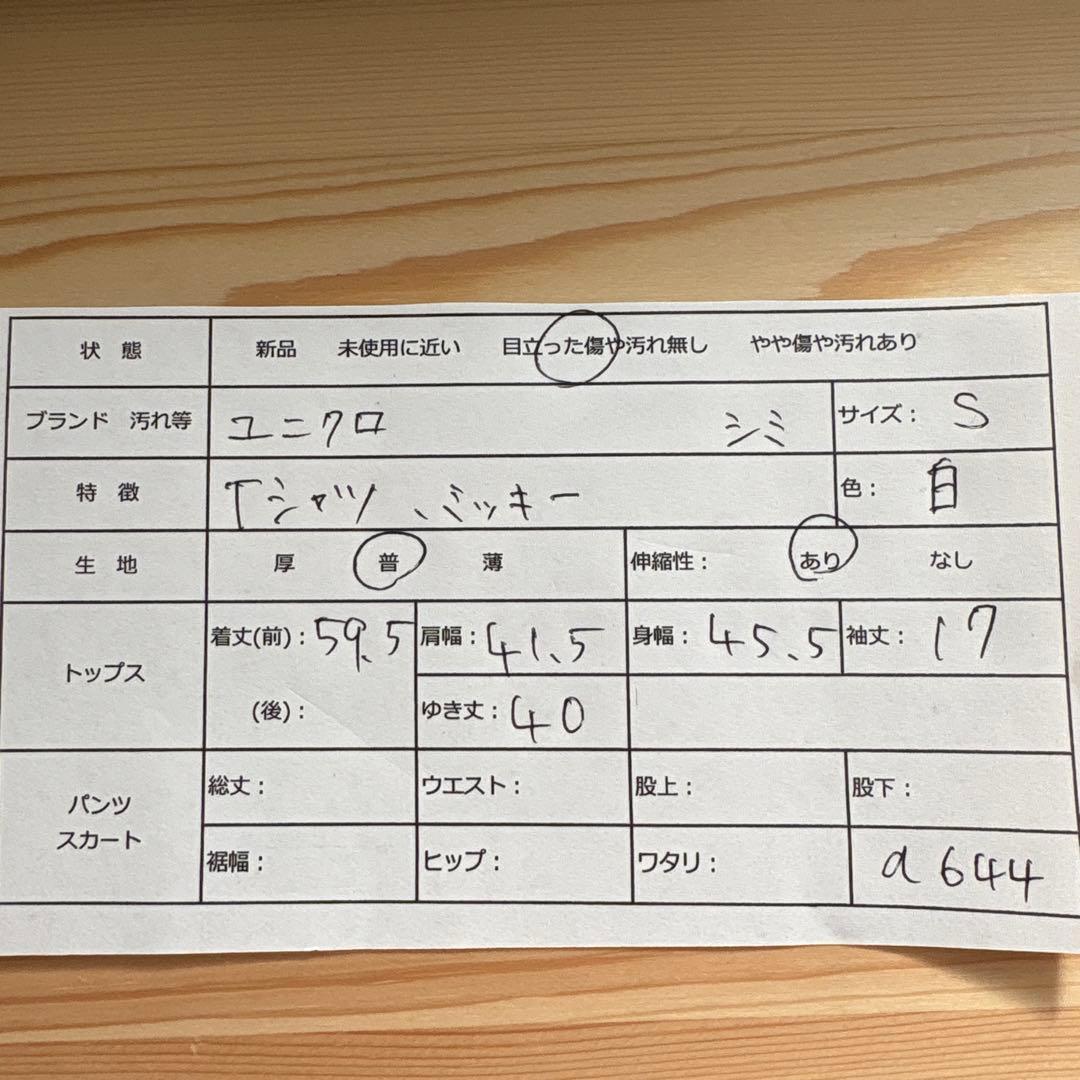 状 態 新品 未使用に近い 目立った傷や汚れ無し やや傷や汚れあり
ブランド 汚れ等 ユニクロ シミ サイズ: S
特 徴 Tシャツ、ミッキー 色: 白
生 地 厚 普 薄 伸縮性: あり なし
トップス 着丈(前): 59.5 肩幅: 41.5 身幅: 45.5 袖丈: 17
(後): ゆき丈: 40
パンツ スカート 総丈: ウエスト: 股上: 股下:
裾幅: ヒップ: ワタリ: a644